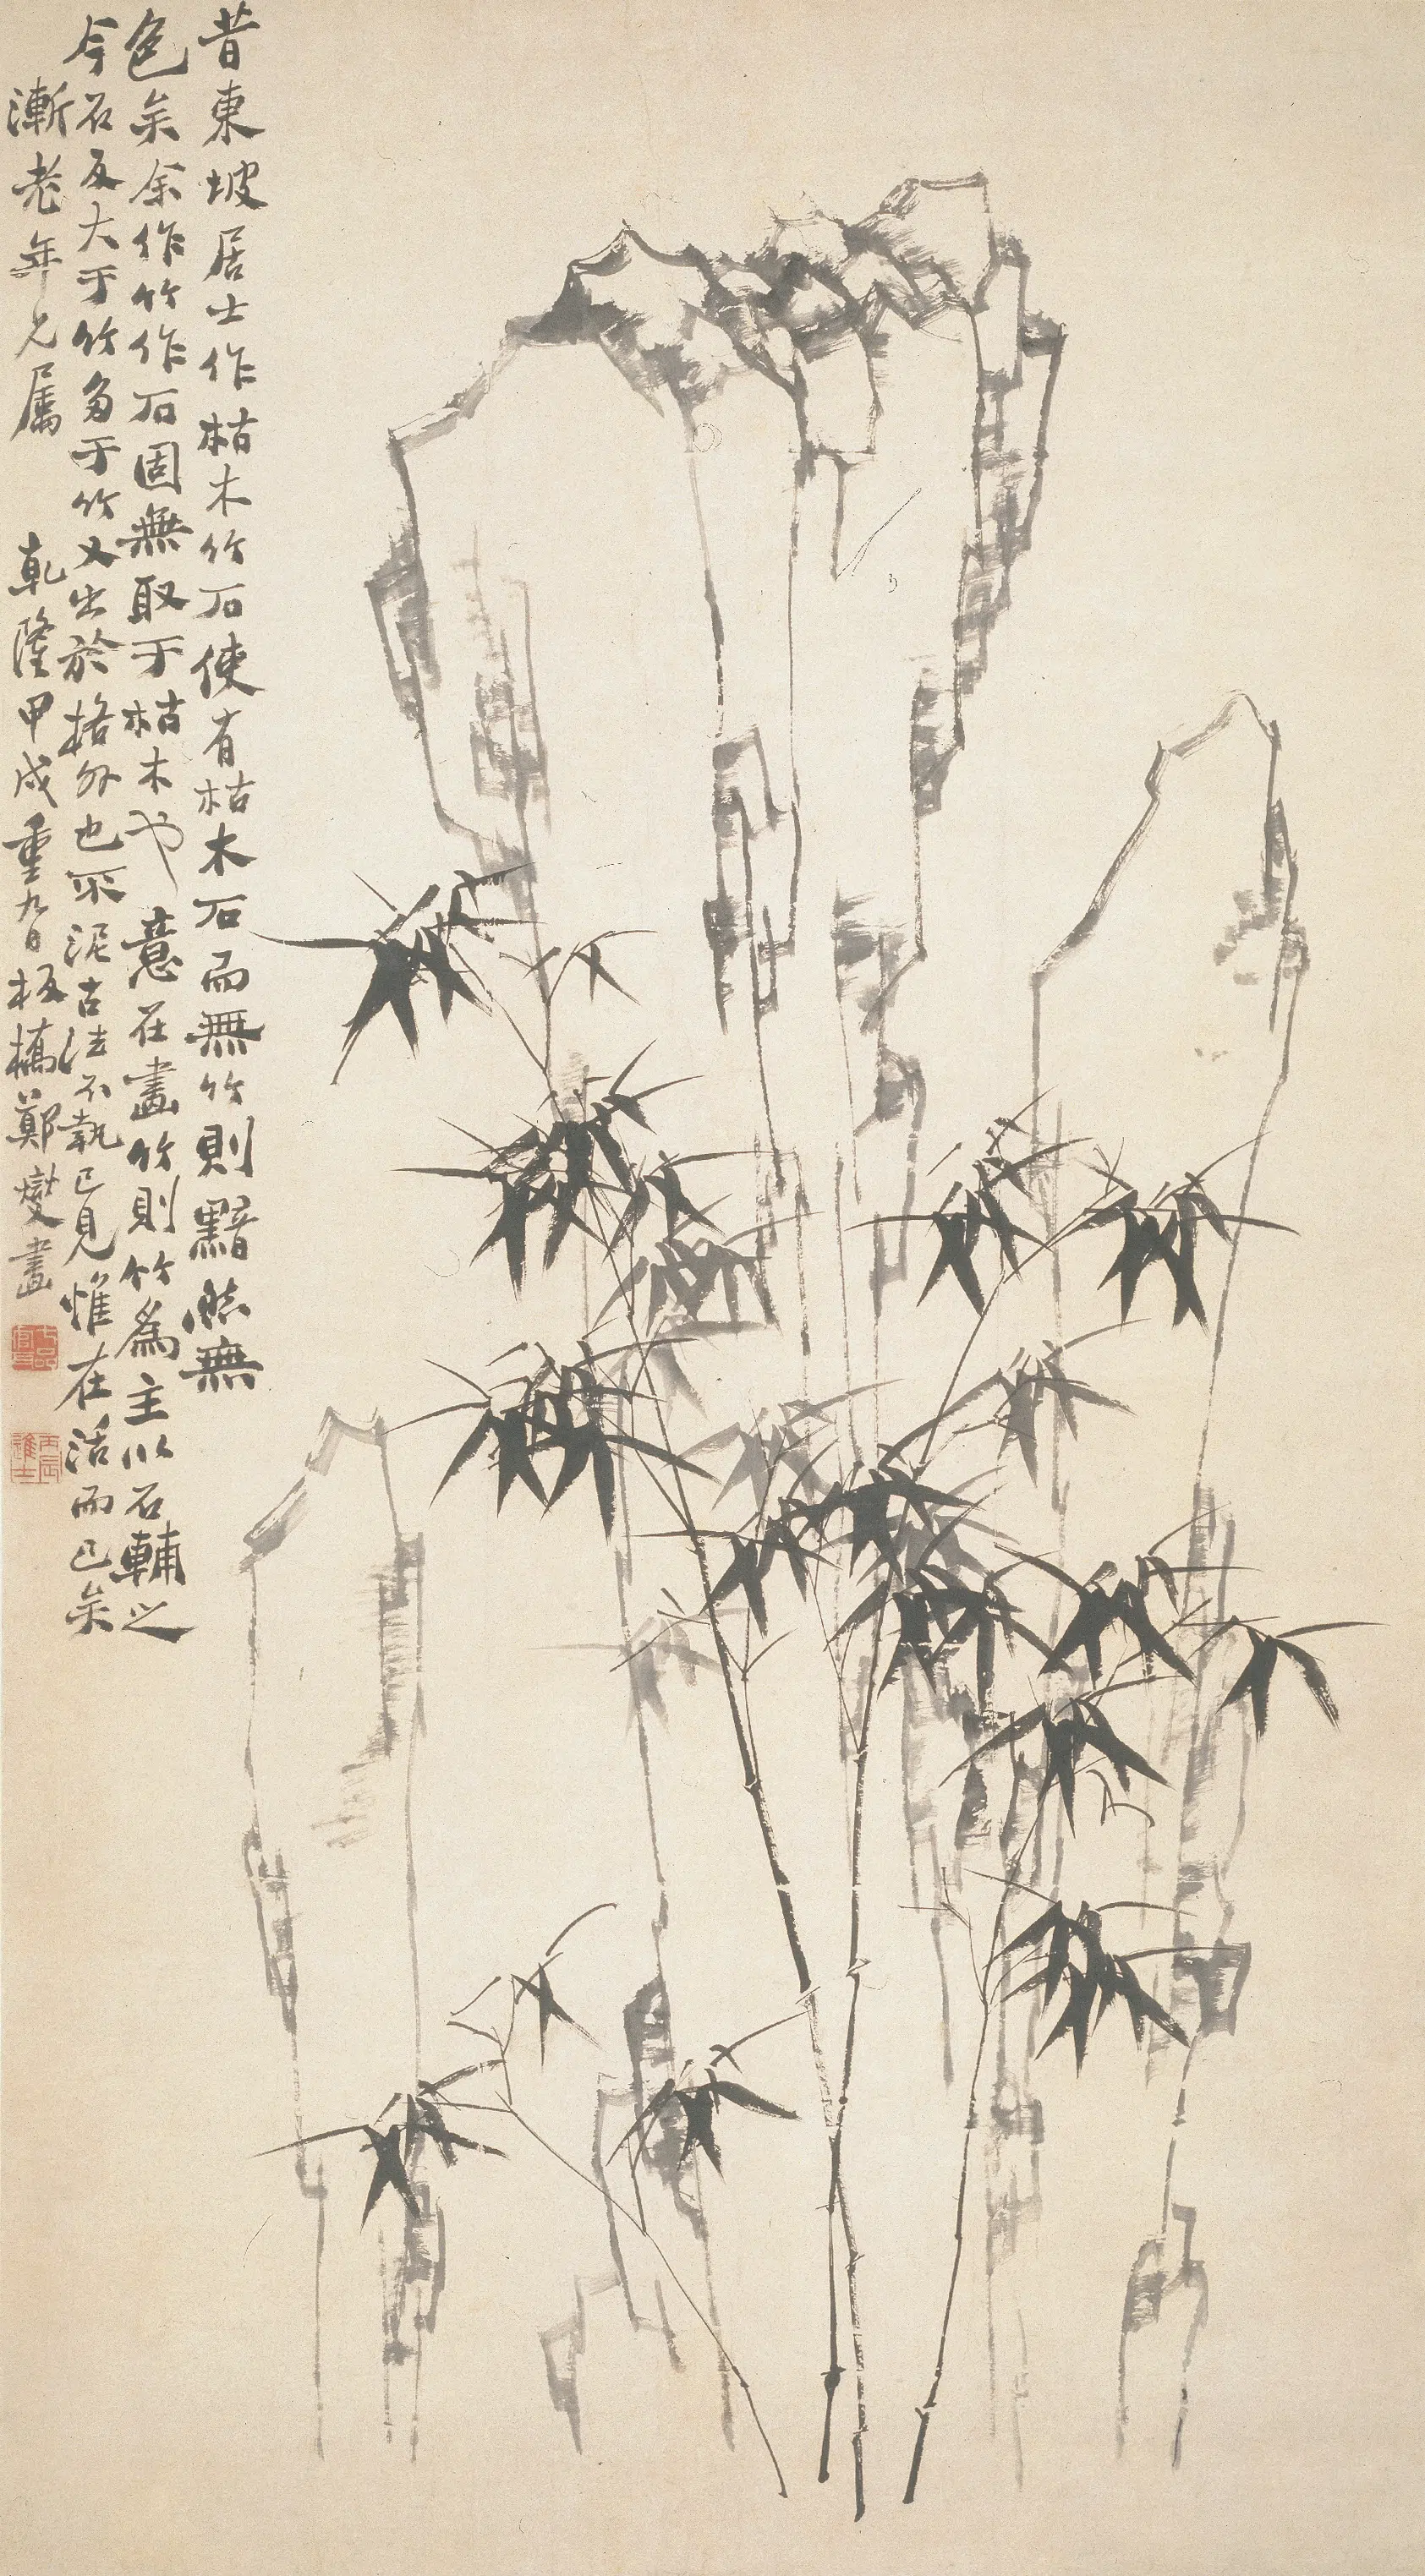 昔東坡居士作枯木竹石使有枯木石而無竹則黯然無
色矣余作竹作石固無取于枯木也意在畫竹則竹為主以石輔之
今石反大于竹多于竹又出於格外也不泥古法不執己見惟在活而已矣
漸老年兄屬 乾隆甲戌重九日板橋鄭燮畫
七品官耳
丙辰進士